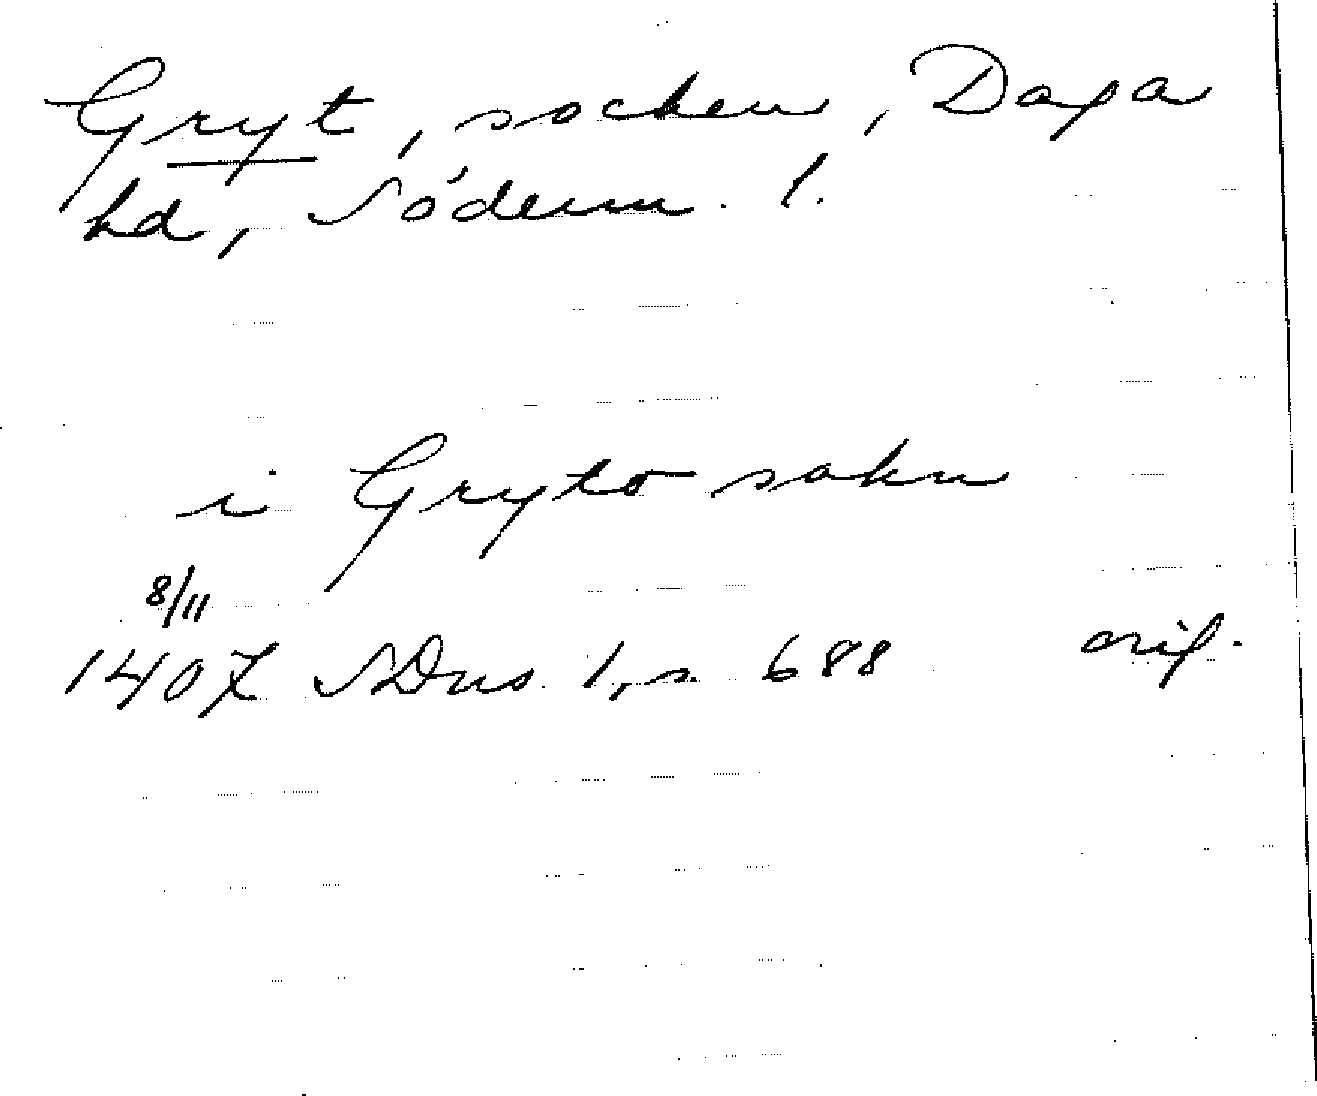 Gryt, socken, Daga
hd, Söderm. l.
i Gryto sokn
8/11
1407 SDns 1, s. 688 orig.